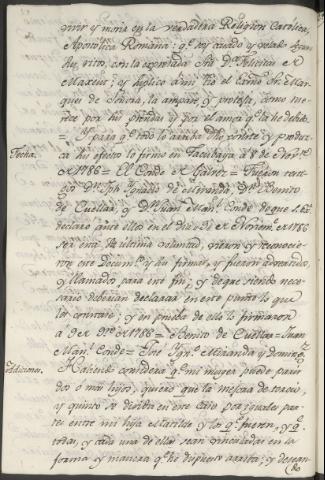 vivir y morir en la verdadera Religion Catolica,
Apostolica Romana; q.e soy casado y velado
rito, con la expresada S.ra D.a Felicitas
Maxent; y suplico á mi tio el Exmo S.or Mar-
ques de Sonora, la ampare, y proteja, como me-
rece por sus prendas y por el amor q.e la he debido
= Y para q.e todo lo arriba d.ho conste y produz-
Fecha.
ca su efecto lo firmo en Tacubaya á 8 de Nov.re
de 1786 = El Conde de Galvez = Fueron testi-
gos D.n Jph Ignacio de Miranda, D.n Benito
de Cuellar, y D.n Juan Man.l Conde de que S. Ex.a
declaró ante ellos en el dia 8 de Noviem.e de 1786
ser esta su ultima voluntad, vieron y reconocie-
ron este Docum.to y su firma, y fueron
y llamados para este fin; y de que siendo nece-
sario deberian declarar en este punto lo que
les conviene; y en prueba de ello lo firmaron
á de de 1786 = Benito de Cuellar = Juan
Man.l Conde = José Ign.o Miranda y Doming.z
Adiciones.
Haciendo considera q.e mi muger puede parir
dos ó mas hijos, quiero que la mejora de tercio,
y quinto se divida en este caso por iguales par-
tes entre mi hija Matilde y los q.e fueren, y q.e
todas, y cada una de ellas sean vinculadas en la
forma y manera q.e he dispuesto arriba; y desean-
do